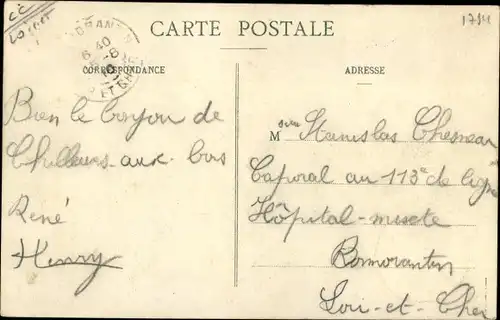 CARTE POSTALE
CORRESPONDANCE
ADRESSE
1714
Bien le bonjour de
Chilleurs-aux-bois
René
Henry
Msieur Stanislas Chesneau
Caporal au 113e de ligne
Hôpital-mixte
Romorantin
Loir-et-Cher